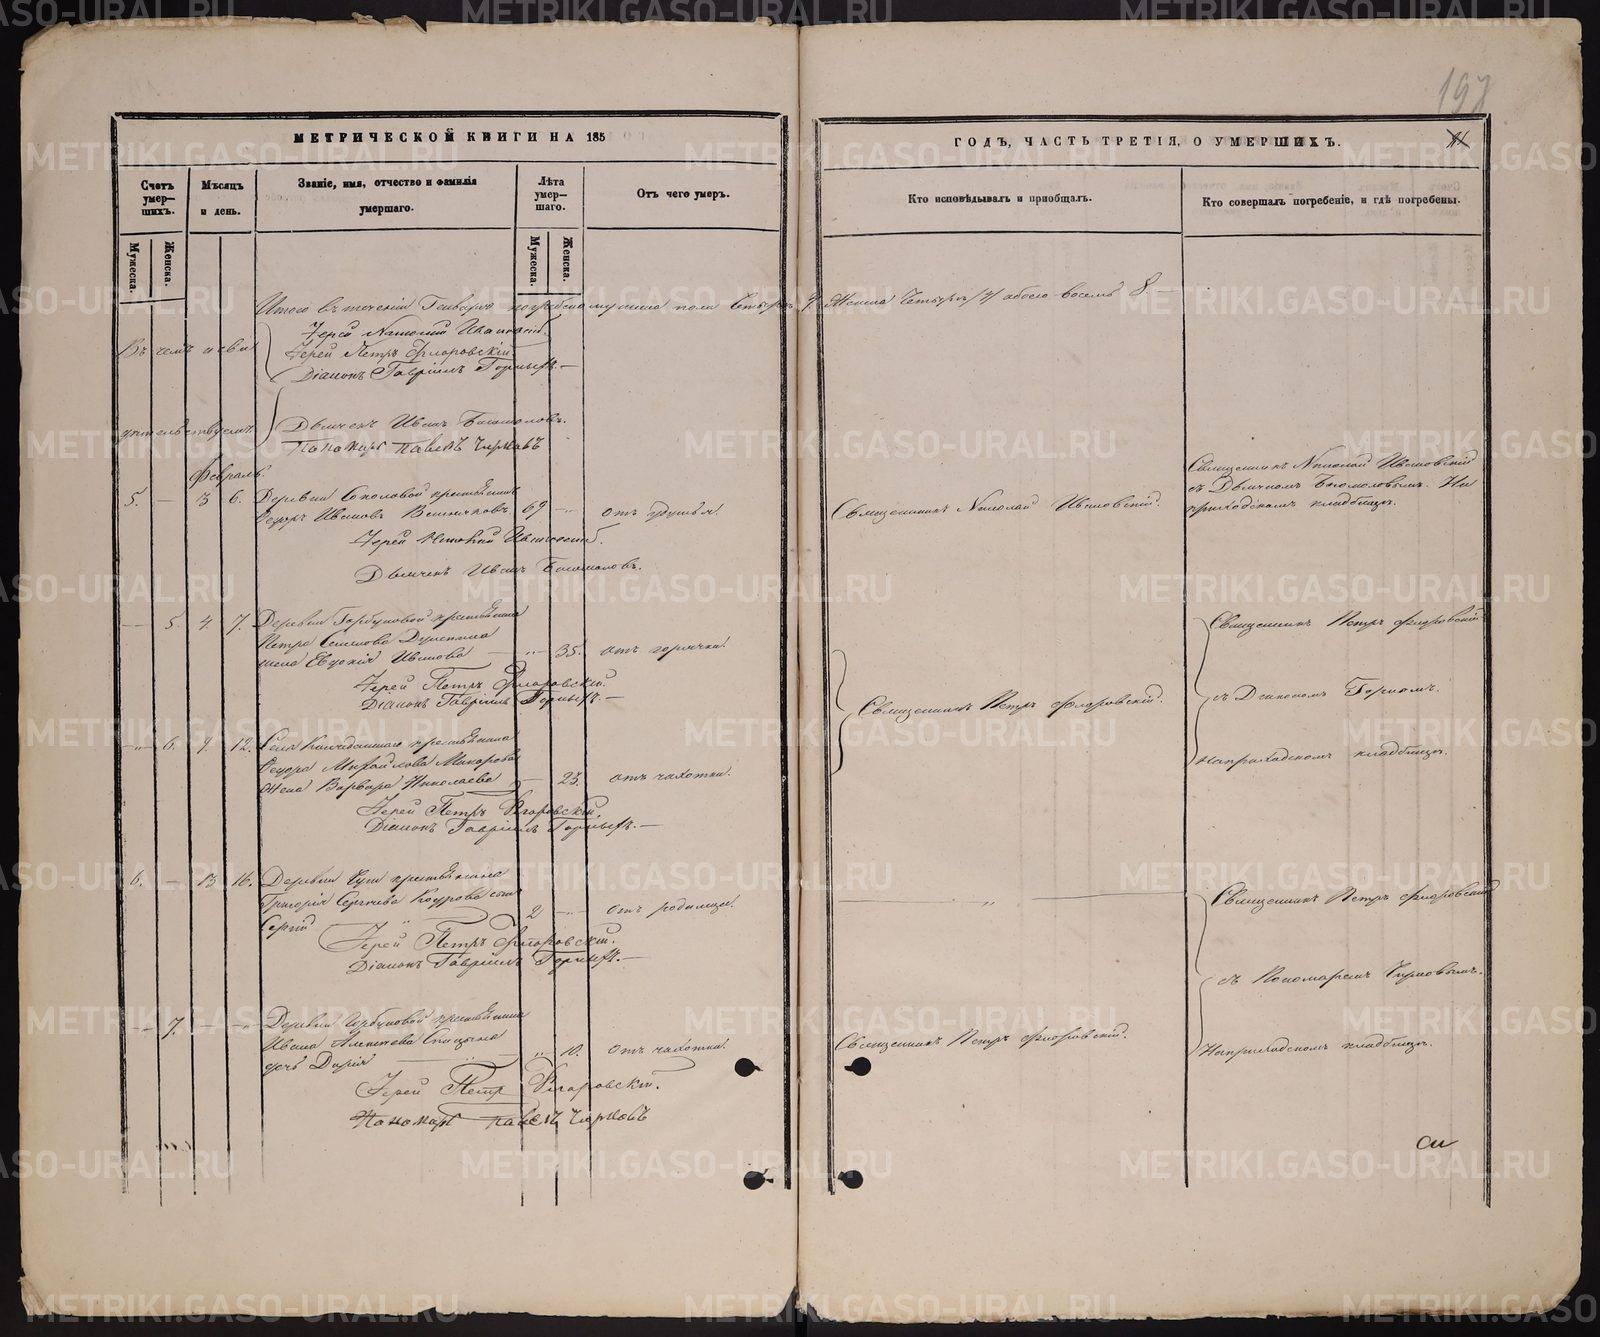 197
МЕТРИЧЕСКОЙ КНИГИ НА 185
ГОДЪ, ЧАСТЬ ТРЕТІЯ, О УМЕРШИХЪ.
Счетъ умер-
шихъ.
Мужеска.
Женска.
Мѣсяцъ
и день.
Званіе, имя, отчество и фамилія
умершаго.
Лѣта
умер-
шаго.
Мужеска.
Женска.
Отъ чего умеръ.
Кто исповѣдывалъ и пріобщалъ.
Кто совершалъ погребеніе, и гдѣ погребены.
Итого въ теченіи Генваря мужеска пола Четыре 4. Женска Четыре /4/ обоего восемь 8
Іерей Николай Ивановскій.
Въ чемъ и сви
Іерей Петръ Флоровскій
Діаконъ Гавріилъ Горныхъ.
дѣтельствуемъ
Дьячекъ Иванъ Богомоловъ.
Пономарь Павелъ Чирковъ
Февраль.
5. — 3 6. Деревни Соколовой крестьянинъ
Ѳедоръ Ивановъ 69 — отъ удушья.
Священникъ Николай Ивановскій.
Священникъ Николай Ивановскій
съ Дьячкомъ Богомоловымъ. На
приходскомъ кладбищѣ.
Іерей Николай Ивановскій.
Дьячекъ Иванъ Богомоловъ.
— 5. 4. 7. Деревни Горбуновой крестьянина
Петра
жена Евдокія Иванова — 35. отъ горячки.
Іерей Петръ Флоровскій.
Діаконъ Гавріилъ Горныхъ.
Священникъ Петръ Флоровскій.
Священникъ Петръ Флоровскій
съ Діакономъ Горнымъ.
На приходскомъ кладбищѣ.
— 6. 9. 12. Села крестьянина
Ѳедора Михайлова Макарова
жена Варвара Николаева — 23. отъ чахотки.
Іерей Петръ Флоровскій.
Діаконъ Гавріилъ Горныхъ.
6. — 13 16. Деревни крестьянина
Григорія Сергѣева сынъ
Сергій 2 — отъ родимца.
Іерей Петръ Флоровскій.
Діаконъ Гавріилъ Горныхъ.
Священникъ Петръ Флоровскій
съ Пономаремъ Чирковымъ.
На приходскомъ кладбищѣ.
— 7. — — Деревни Горбуновой крестьянина
Ивана Алексѣева Спицына
дочь Дарія 10. отъ чахотки.
Священникъ Петръ Флоровскій.
Іерей Петръ Флоровскій.
Пономарь Павелъ Чирковъ
METRIKI.GASO-URAL.RU